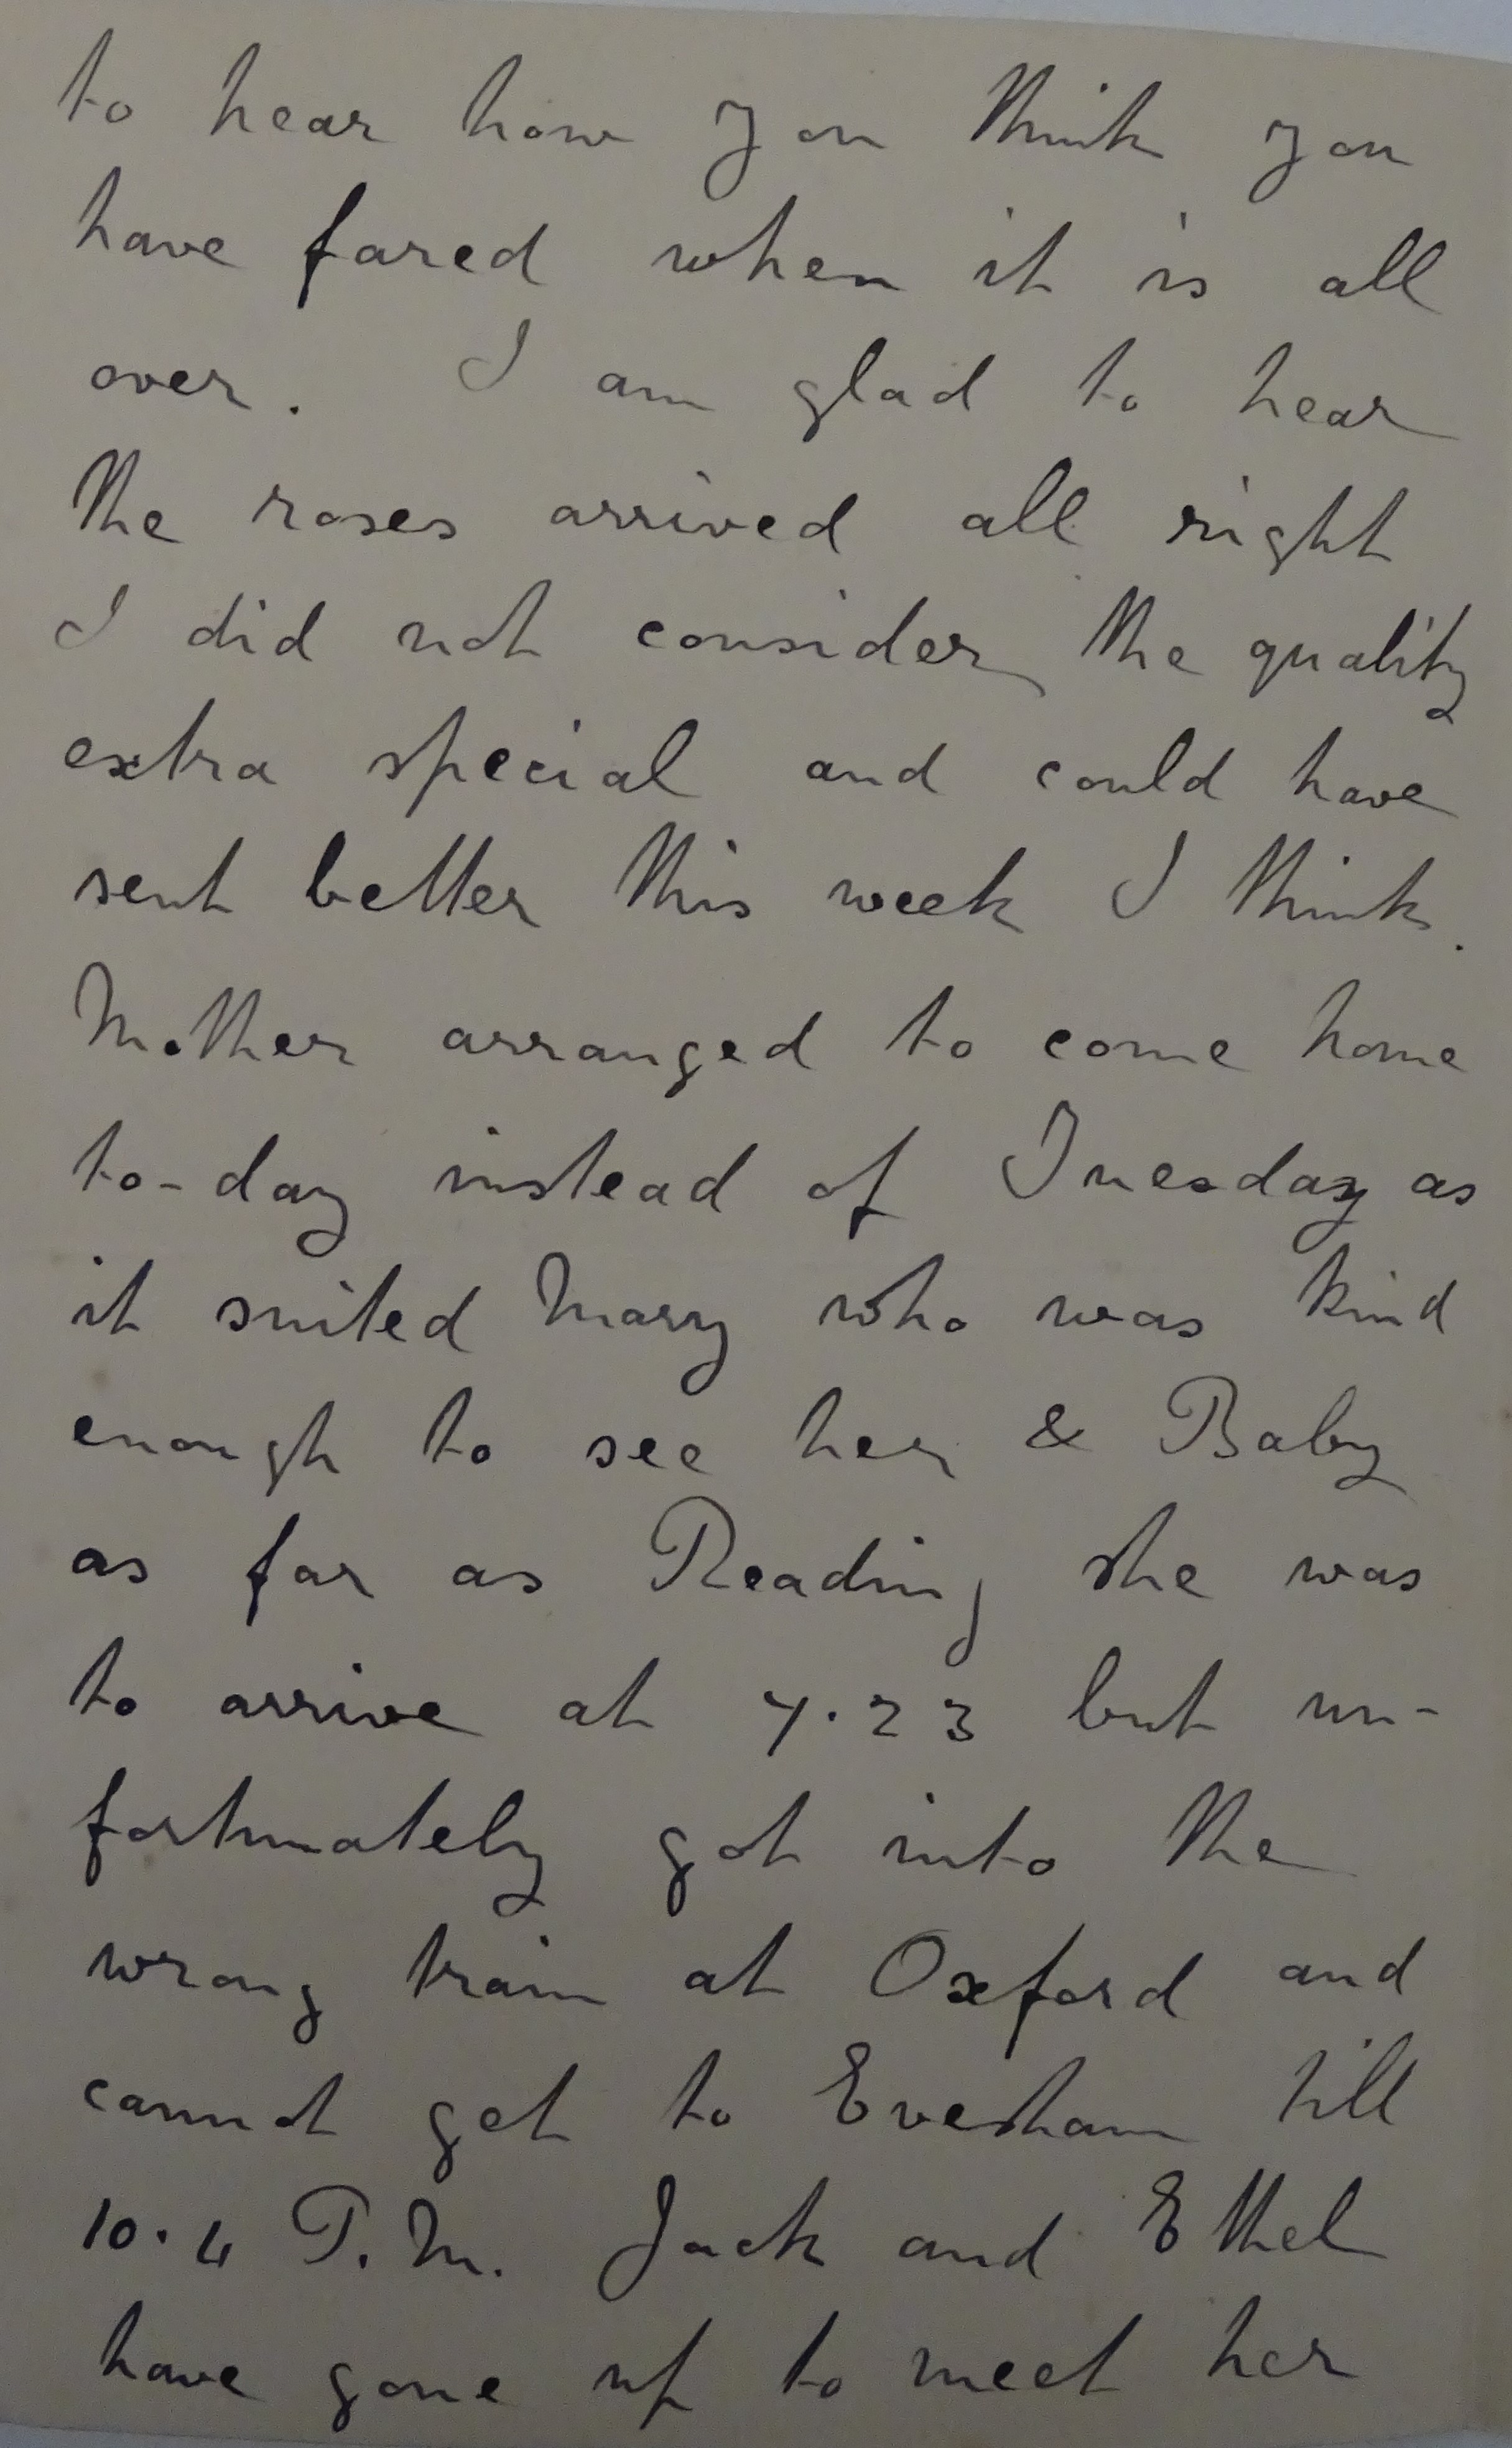 to hear how you think you
have fared when it is all
over. I am glad to hear
the roses arrived all right
I did not consider the quality
extra special and could have
sent better this week I think.
Mother arranged to come home
to-day instead of Tuesday as
it suited Mary who was kind
enough to see her & Baby
as far as Reading she was
to arrive at 7.23 but un-
fortunately got into the
wrong train at Oxford and
cannot get to Evesham till
10.4 P.M. Jack and Ethel
have gone up to meet her